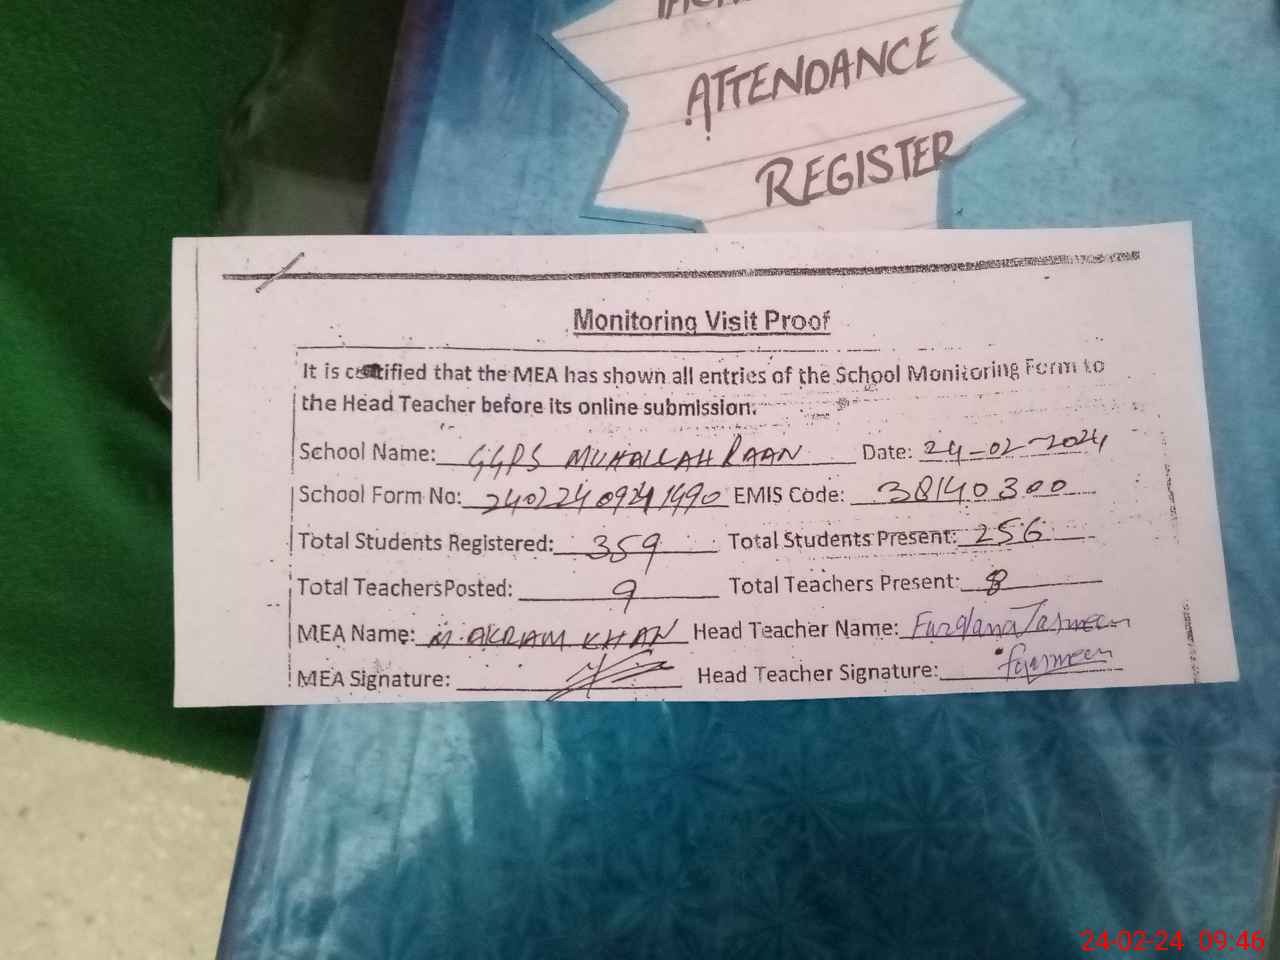 ATTENDANCE
REGISTER
Monitoring Visit Proof
It is certified that the MEA has shown all entries of the School Monitoring Form to
the Head Teacher before its online submission.
School Name: GGPS MUHALLAH RAAN Date: 24-02-2024
School Form No: EMIS Code: 38140300
Total Students Registered: 359 Total Students Present: 256
Total Teachers Posted: 9 Total Teachers Present: 8
MEA Name: M. AKRAM KHAN Head Teacher Name: Farzana Jasmeen
MEA Signature: Head Teacher Signature:
24-02-24 09:46